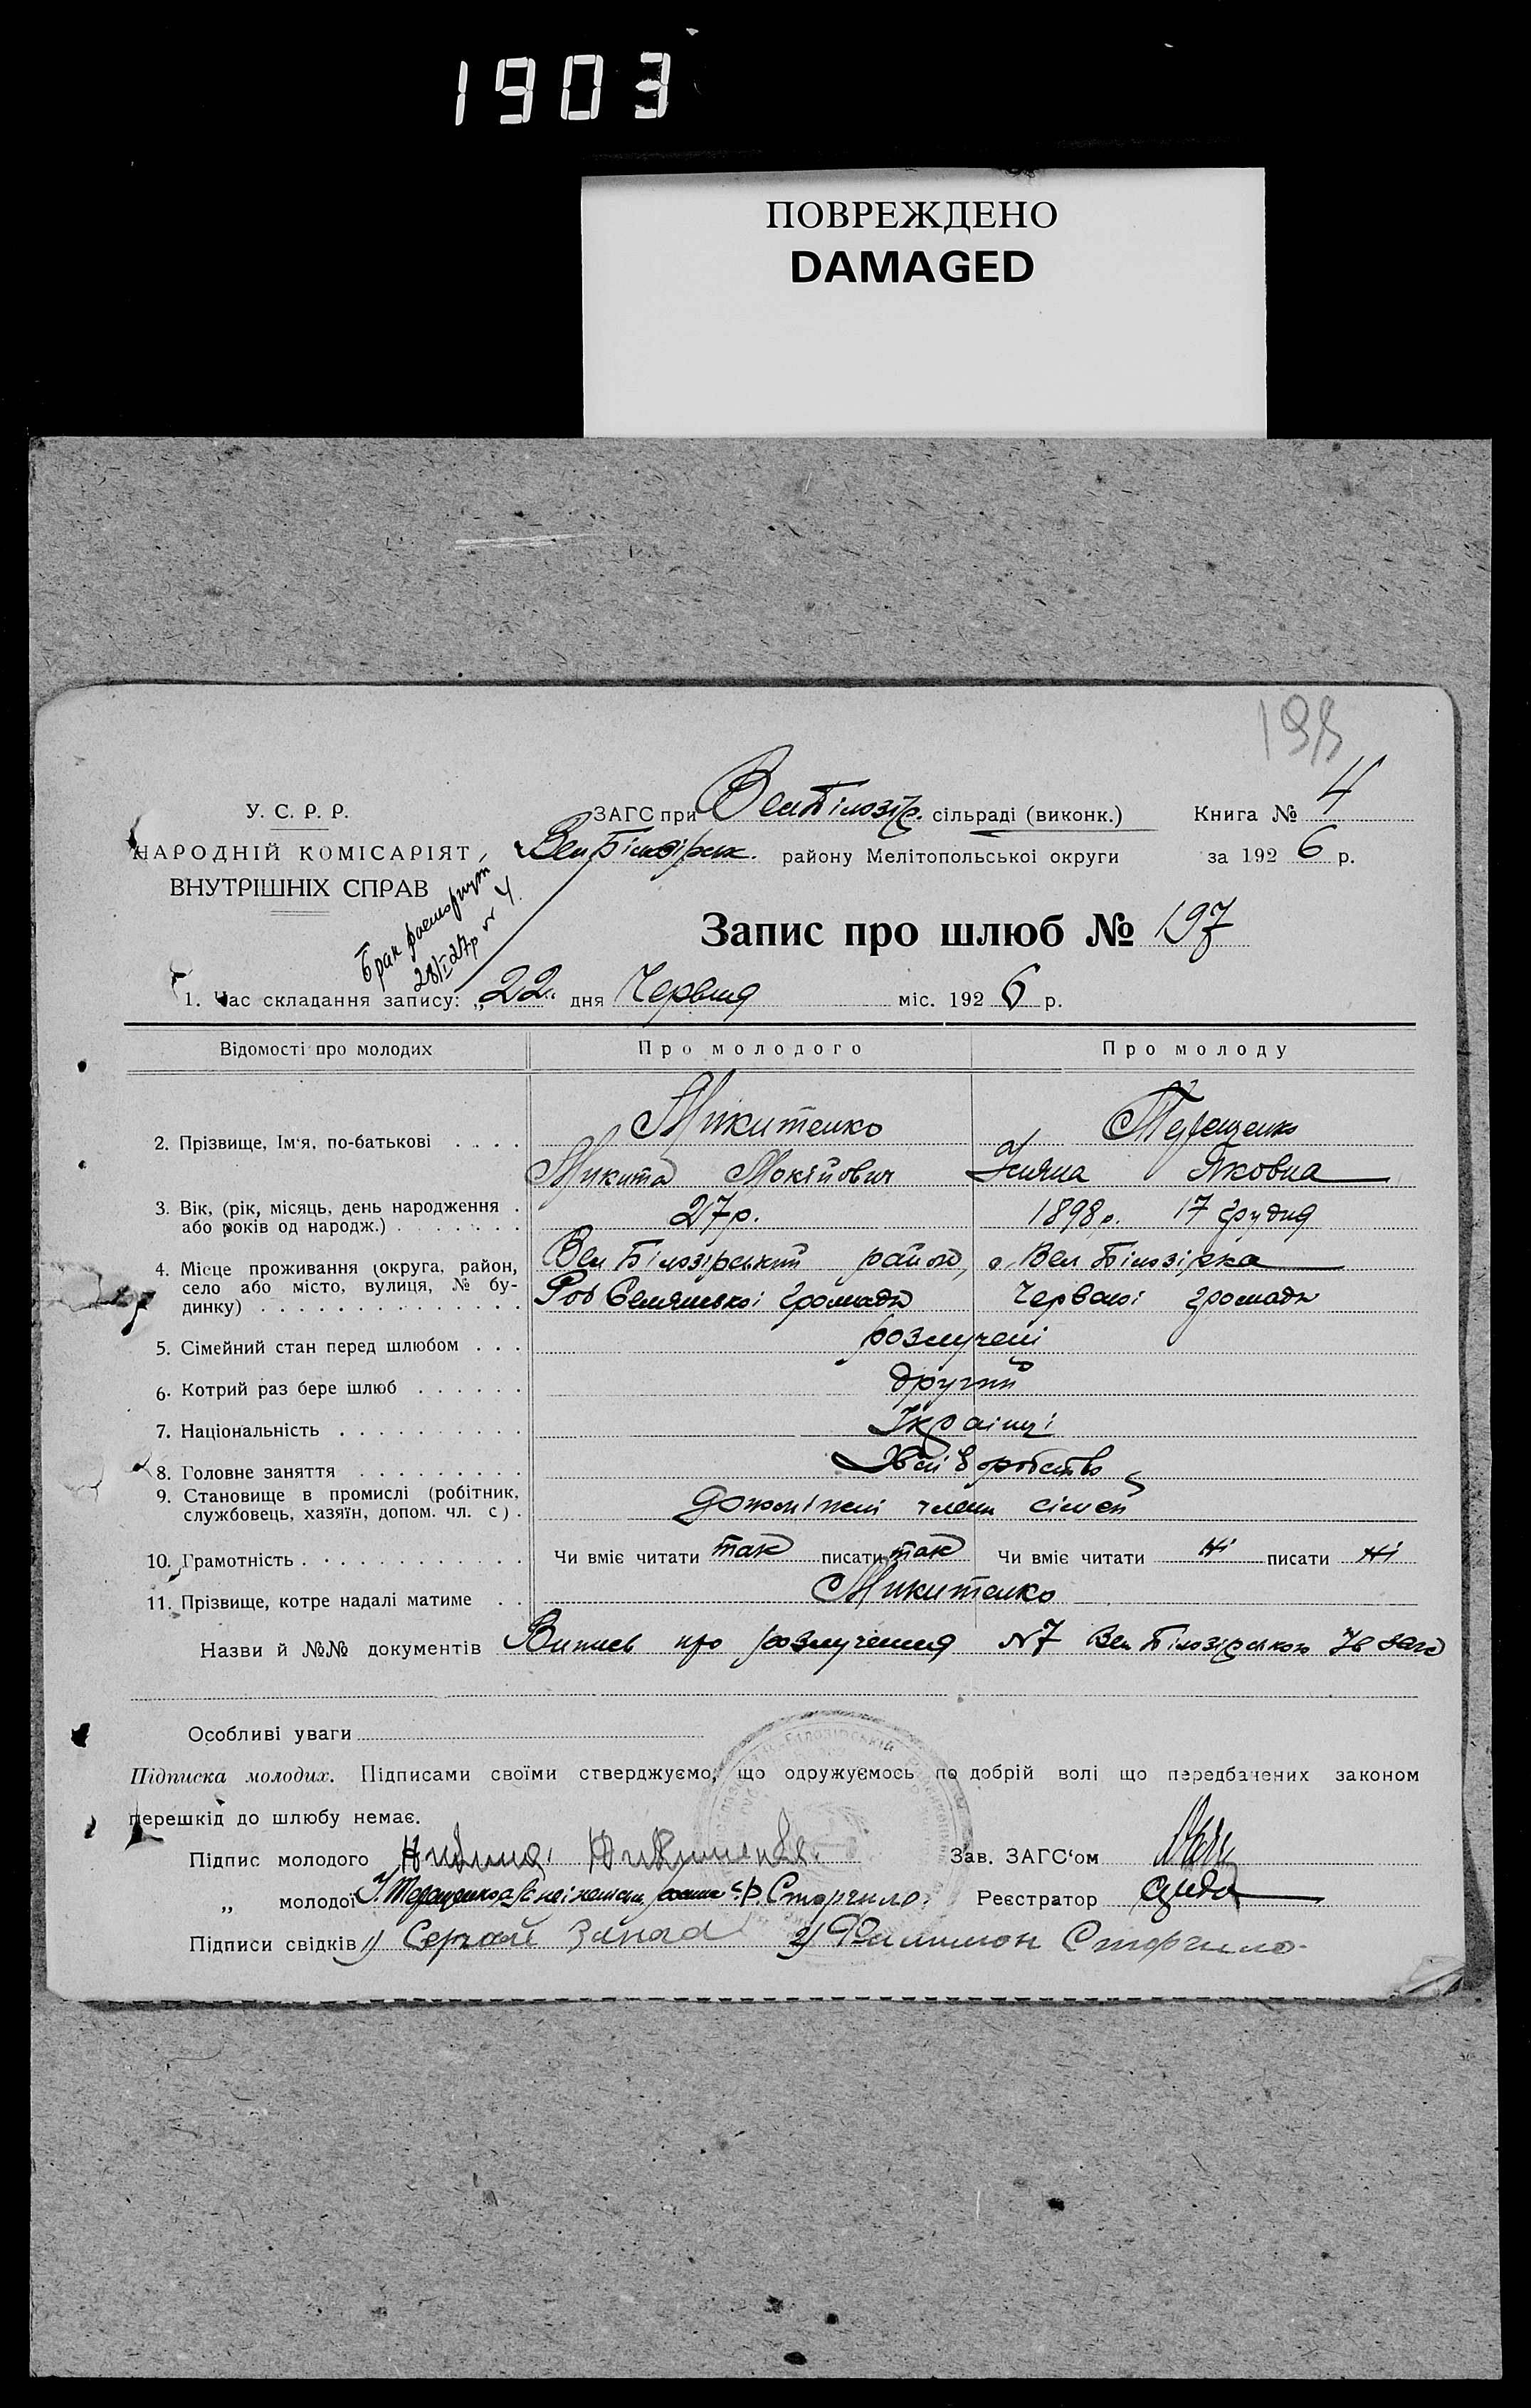 1903
ПОВРЕЖДЕНО
DAMAGED
198
У. С. Р. Р.
НАРОДНІЙ КОМІСАРІЯТ
ВНУТРІШНІХ СПРАВ
ЗАГС при Вел Білозір. сільраді (виконк.) Книга № 4
Вел Білозірськ. району Мелітопольської округи за 1926 р.
Брак расторгнут
28/I 27р № 4.
Запис про шлюб № 197
1. Час складання запису: „22" дня Червня міс. 1926 р.
Відомості про молодих Про молодого Про молоду
Микитенко Терещенко
2. Прізвище, Ім'я, по-батькові . . . .
Микита Мокійович Уляна Яковна
3. Вік, (рік, місяць, день народження .
або років од народж.) . . . . . . . 27р. 1898р. 17 грудня
4. Місце проживання (округа, район, Вел Білозірський район, с. Вел Білозірка
село або місто, вулиця, № бу-
динку) . . . . . . . . . . . . . . громади Червоної громади
5. Сімейний стан перед шлюбом . . . розлучені
6. Котрий раз бере шлюб . . . . . . другий
7. Національність . . . . . . . . . . Українці
8. Головне заняття . . . . . . . . . Хліборобство
9. Становище в промислі (робітник,
службовець, хазяїн, допом. чл. с) . члени сімей
10. Грамотність . . . . . . . . . . . . Чи вміє читати так писати так Чи вміє читати ні писати ні
11. Прізвище, котре надалі матиме . . Микитенко
Назви й №№ документів Випись про розлучення №7 Вел Білозірського
Особливі уваги
Підписка молодих. Підписами своїми стверджуємо, що одружуємось по добрій волі що передбачених законом
перешкід до шлюбу немає.
Підпис молодого Зав. ЗАГС'ом
„ молодої Терещенко Сторчило Реєстратор
Підписи свідків 1) Сергей 2) Филимон Сторчило